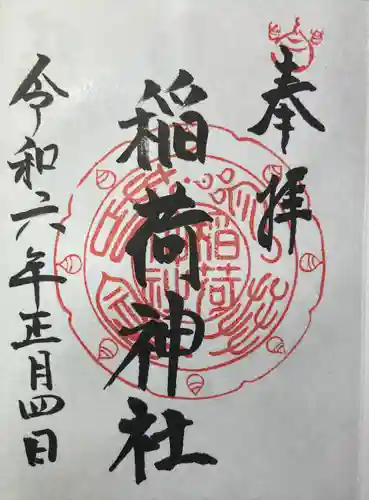 奉拝
稲荷神社
令和六年正月四日
稲荷